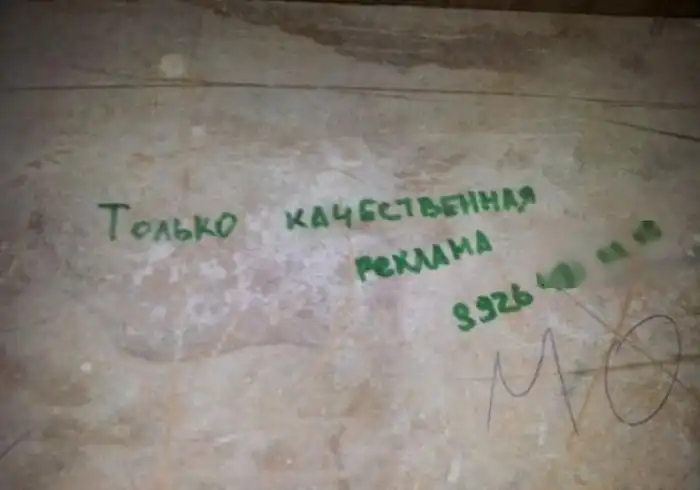 Только качественная
реклама
8926
МО